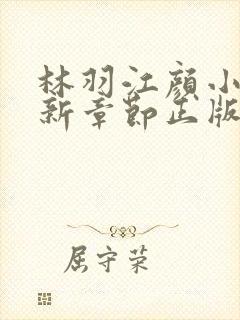 林羽江颜小
新章节正版
屈守荣